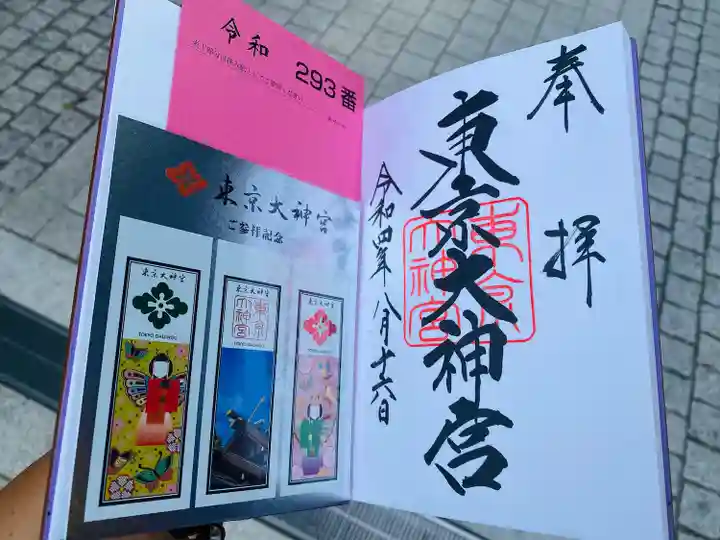 令和 293番
東京大神宮
ご参拝記念
東京大神宮
TOKYO DAIJINGU
東京大神宮
東京大神宮
東京大神宮
奉拝
東京大神宮
東京大神宮
令和四年八月十六日